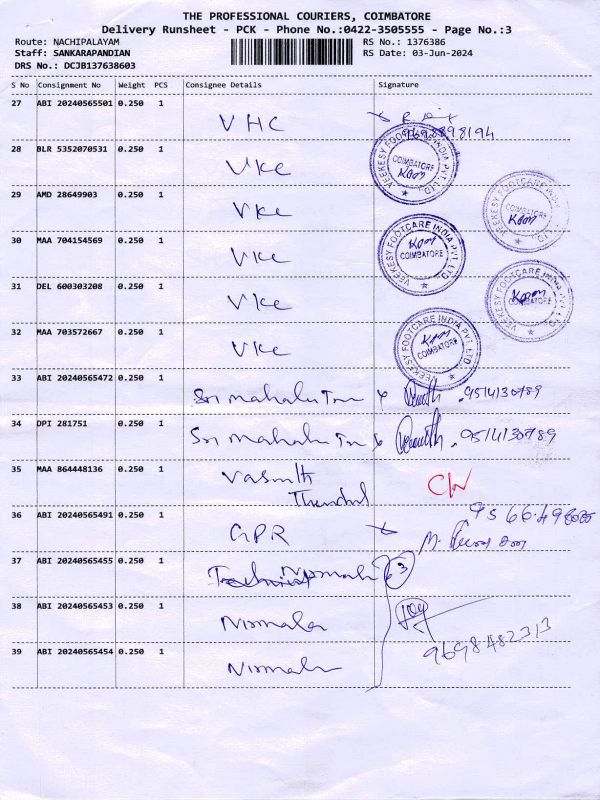 THE PROFESSIONAL COURIERS, COIMBATORE
Delivery Runsheet - PCK - Phone No.:0422-3505555 - Page No.:3
Route: NACHIPALAYAM RS No.: 1376386
Staff: SANKARAPANDIAN RS Date: 03-Jun-2024
DRS No.: DCJB137638603
S No Consignment No Weight PCS Consignee Details Signature
27 ABI 20240565501 0.250 1 VHC
9698898194
28 BLR 5352070531 0.250 1 VKC
VEEKESY FOOTCARE INDIA PVT. LTD. COIMBATORE
29 AMD 28649903 0.250 1 VKC
VEEKESY FOOTCARE INDIA PVT. LTD. COIMBATORE
30 MAA 704154569 0.250 1 VKC
VEEKESY FOOTCARE INDIA PVT. LTD. COIMBATORE
31 DEL 600303208 0.250 1 VKC
VEEKESY FOOTCARE INDIA PVT. LTD. COIMBATORE
32 MAA 703572667 0.250 1 VKC
VEEKESY FOOTCARE INDIA PVT. LTD. COIMBATORE
33 ABI 20240565472 0.250 1 Sri mahalu 9514130789
34 DPI 281751 0.250 1 Sri mahalu 9514130789
35 MAA 864448136 0.250 1 Vasnth
36 ABI 20240565491 0.250 1 GPR
37 ABI 20240565455 0.250 1 Nirmala 3
38 ABI 20240565453 0.250 1 Nirmala
9698482313
39 ABI 20240565454 0.250 1 Nirmala